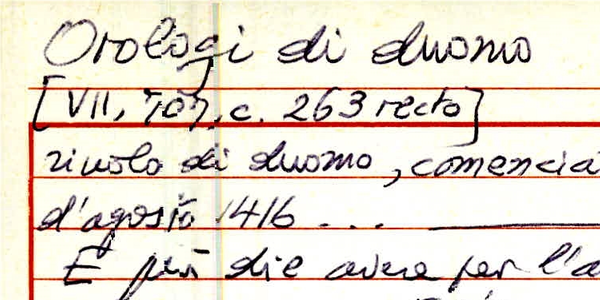 Orologi di duomo
[VII, 707, c. 263 recto]
rivolo di duomo, comencia
d'agosto 1416 ...
E più die avere per l'a